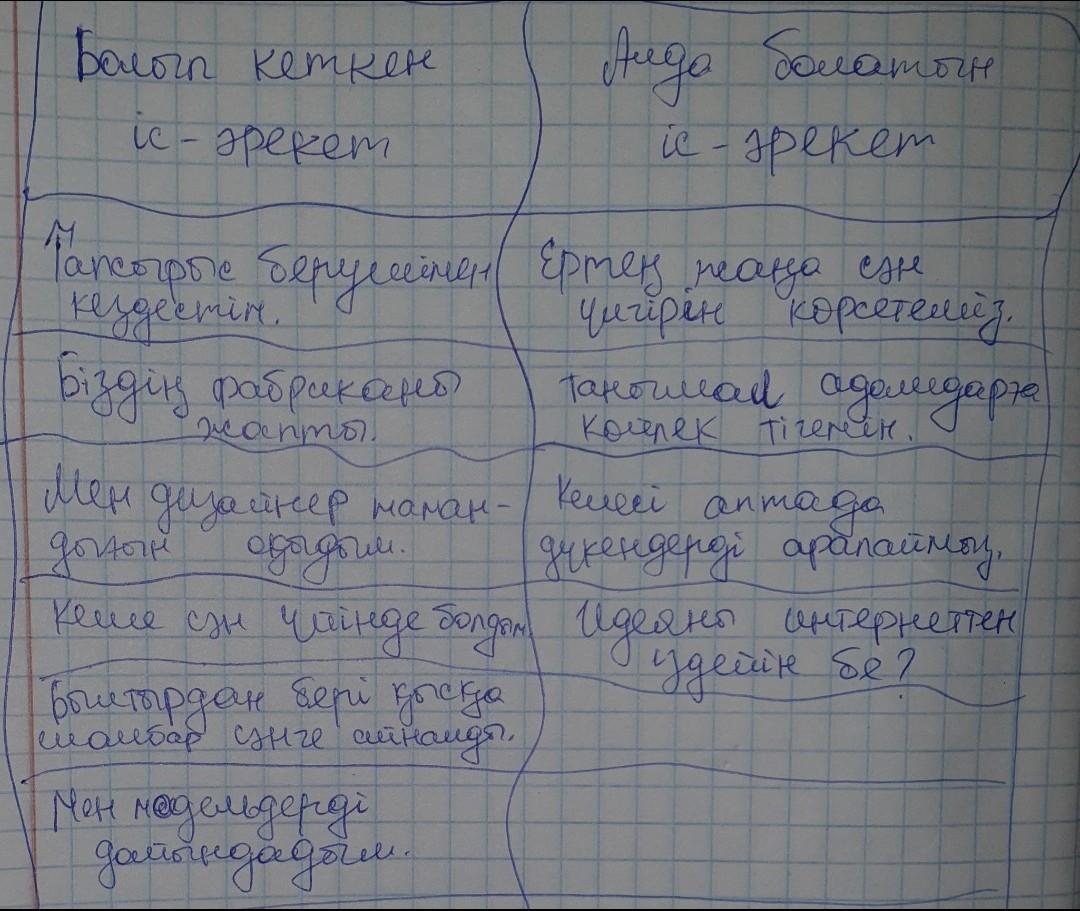 Болып кеткен
іс-әрекет
Алда болатын
іс-әрекет
Тапсырыс берушімен
кездестім.
Ертең жаңа сән
үлгірін көрсетеміз.
Біздің фабриканы
жапты.
Танымал адамдарға
көйлек тігемін.
Мен дизайнер маман-
дығын оқыдым.
Келесі аптада
дүкендерді аралаймыз.
Кеше сән үйінде болдым
Идеяны интернеттен
іздейін бе?
Былтырдан бері қысқа
шалбар сәнге айналды.
Мен модельдерді
дайындадым.